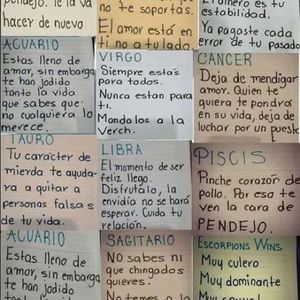 pendejo. Te la va
hacer de nuevo
no te soportas.
El amor está en
ti no a tulado.
es tu
estabilidad.
Ya pagaste cada
error de tu pasado
ACUARIO
Estas lleno de
amor, sin embargo
te han jodido
tanto la vida
que sabes que
no cualquiera lo
merece.
VIRGO
Siempre estás
para todos.
Nunca estan para
ti.
Mandalos a la
Verch.
CANCER
Deja de mendigar
amor. Quien te
quiera te pondrá
en su vida, deja de
luchar por un puest
TAURO
Tu carácter de
mierda te ayuda-
ra a quitar a
personas falsas
de tu vida.
LIBRA
El momento de ser
feliz llego.
Disfrutálo, la
envidia no se hará
esperar. Cuida tu
relación.
PISCIS
Pinche corazón de
pollo. Por eso te
ven la cara de
PENDEJO.
ACUARIO
Estas lleno de
amor, sin embarg
te han jodido
SAGITARIO
NO sabes ni
que chingados
quieres.
No temes a la
ESCORPIONS WINS.
Muy culero
Muy dominante
Muy